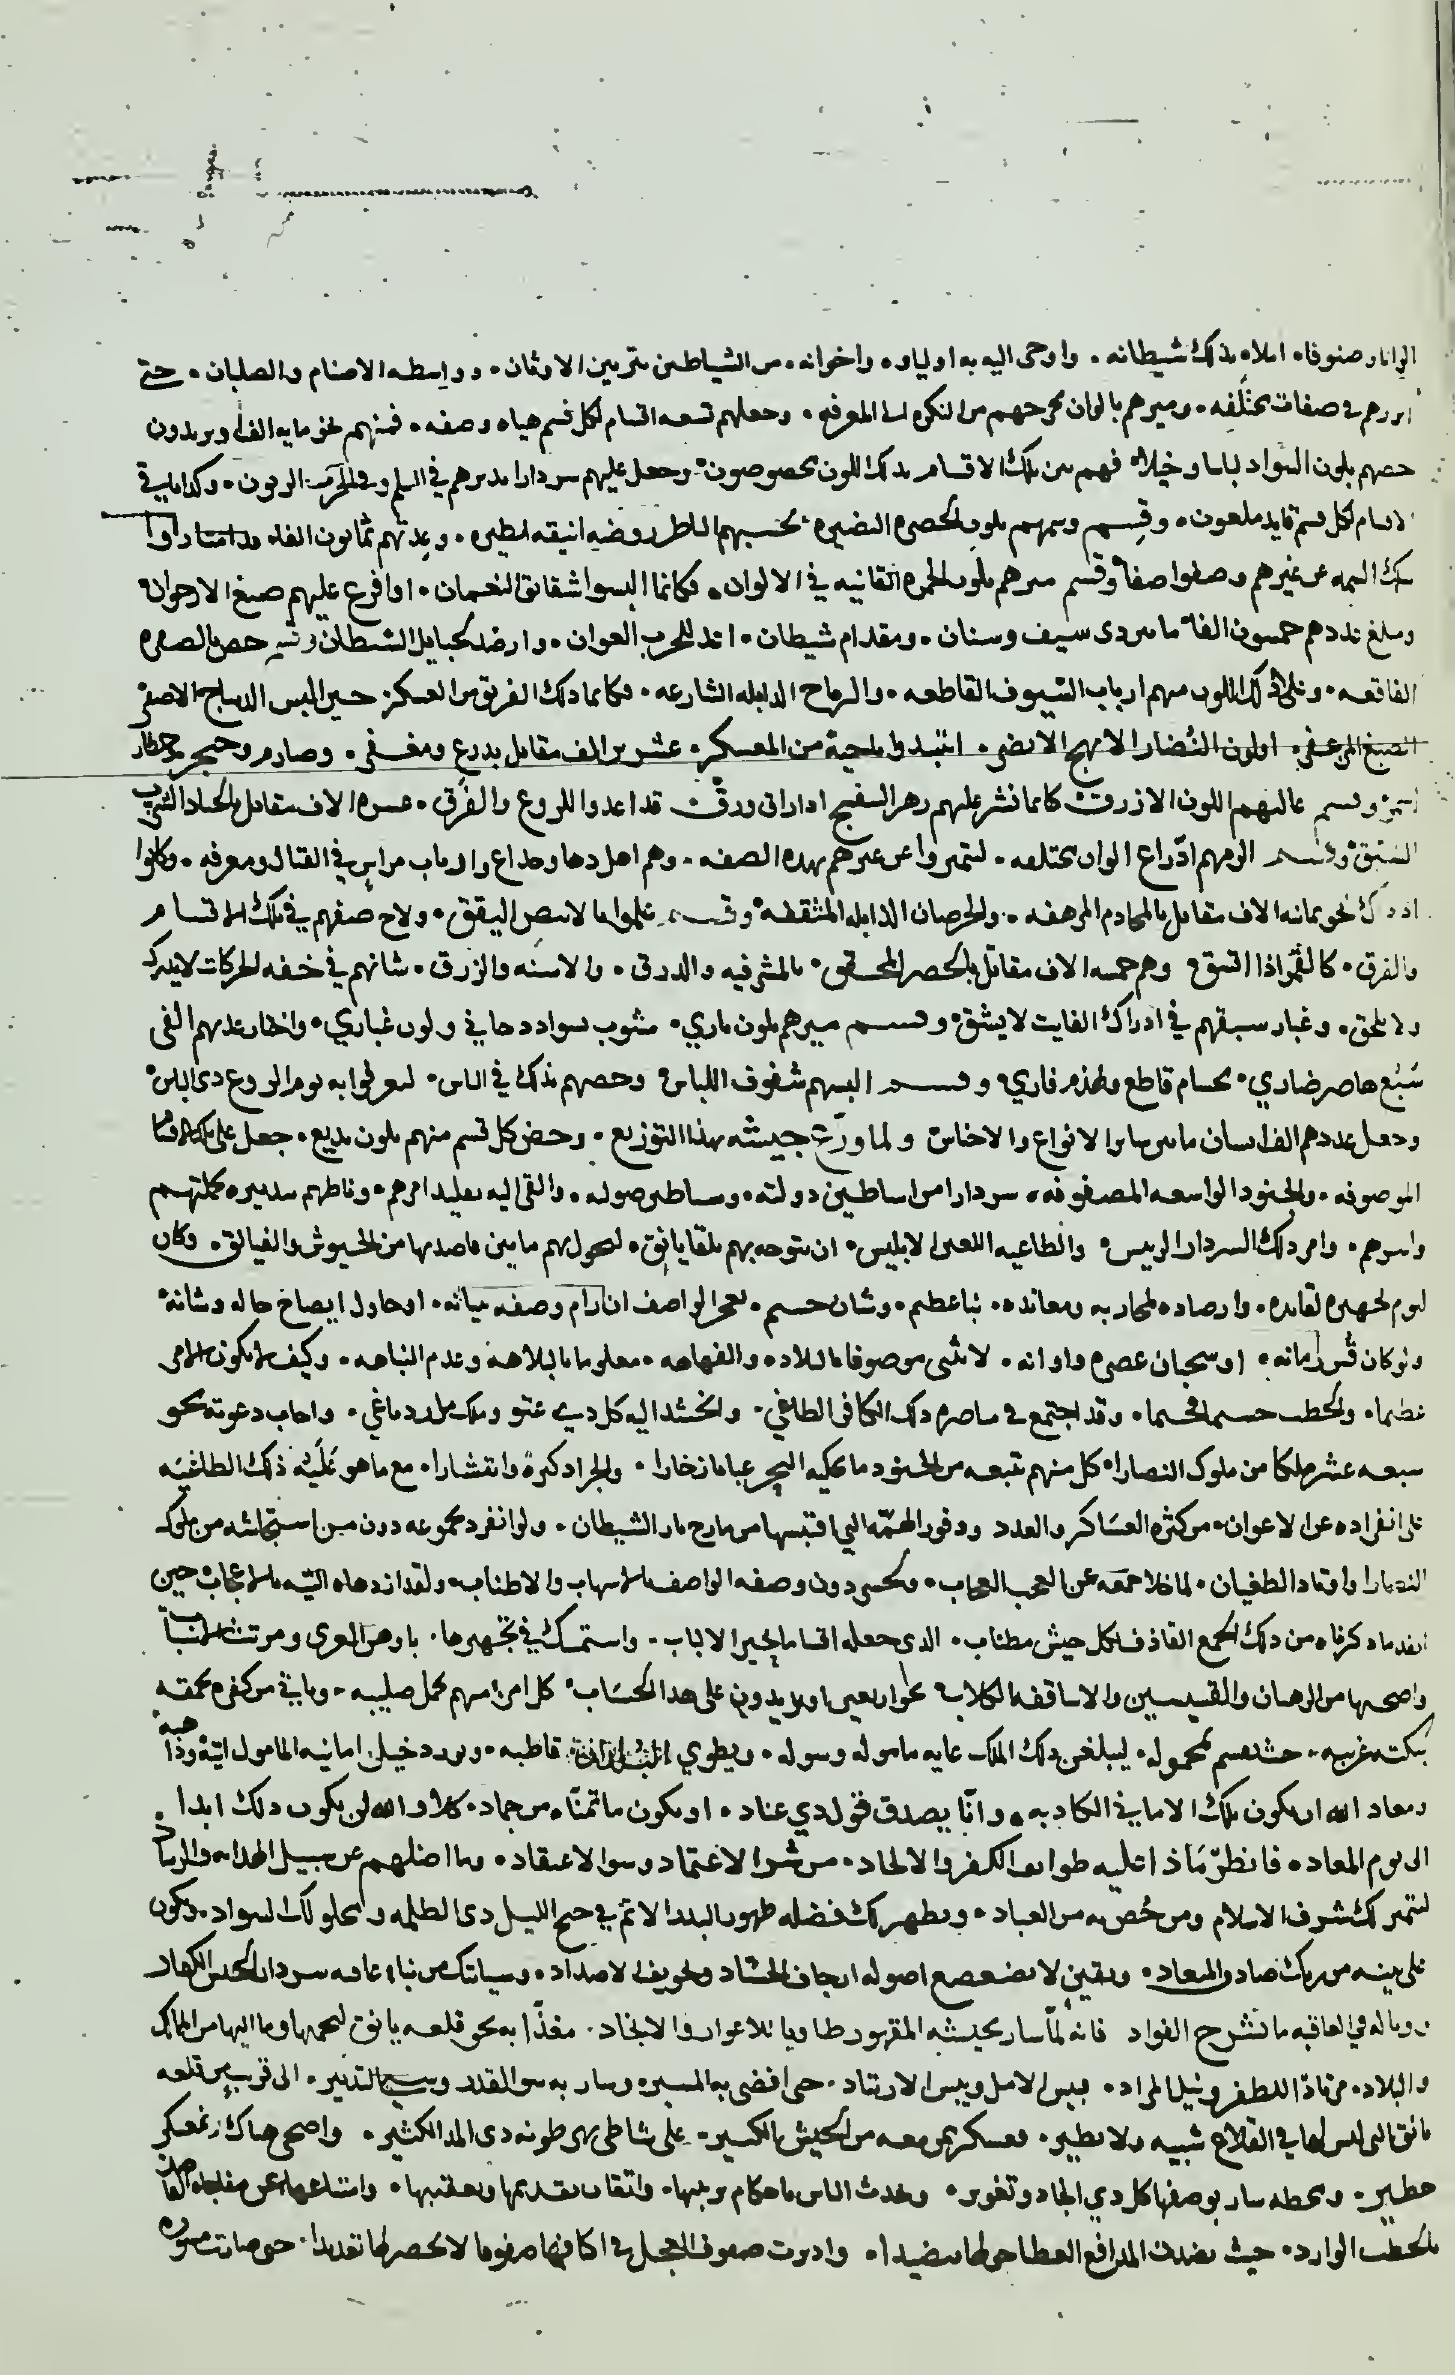 الوانا وصنوفا املاه بذلك شيطانه واوحى اليه به اولياوه واخوانه من الشياطين مترمين الاوثان وواسطه الاصنام والصلبان حتى
في صفات مختلفه وميزهم بالوان تخرجهم من النكره الى المعرفه وجعلهم تسعه اقسام لكل قسم هياه وصفه فمنهم نحو مايه الف او يزيدون
خصهم بلون السواد لباسا وخيلا فهم من تلك الاقسام بذلك اللون مخصوصون وجعل عليهم سردارا يدبرهم في السلم وفي الحرب الزبون وكذا بقي
لكل قسم قايد ملعون وقسم وسمهم بلون الخضره النضيره تحسبهم الناظر روضه انيقه مطيره وعدتهم ثمانون الفا قد امتازوا
عن غيرهم وصفوا صفا وقسم ميزهم بلون الحمره القانيه في الالوان فكانما البسوا شقائق النعمان او افرغ عليهم صبغ الارجوان
ومبلغ عددهم خمسون الفا ما بين ذي سيف وسنان ومقدام شيطان اعد للحرب العوان وارصد لحبايل الشيطان وقسم خص بالصفره
الفاقعه وعلى ذلك اللون منهم ارباب السيوف القاطعه والرماح الذابله الشارعه فكانما ذلك الفريق من العسكر حين البس الديباج الاصفر
الصبغ المزعفر او لون النضار الابهج الانضر انتبذوا بناحية من المعسكر عشرين الف مقاتل بدرع ومغفر وصارم وخنجر وخطار
اسمر وقسم عاليهم اللون الازرق كانما نشر عليهم زهر البنفسج اذا راق ورق قد اعدوا للروع والفرق عشره الاف مقاتل بالجياد الشزب
السبق وقسم الزمهم ادراع الوان مختلفه ليتميزوا عن غيرهم بهذه الصفه وهم اهل دها وخداع وارباب مراس في القتال ومعرفه وكانوا
اذ ذاك نحو ثمانيه الاف مقاتل بالصوارم المرهفه والخرصان الذابله المثقفه وقسم علموا بالابيض اليقق ولاح صفهم في تلك الاقسام
والفرق كالقمر اذا اتسق وهم خمسه الاف مقاتل بالحصر المحقق بالمشرفيه والدرق والاسنه والزرق شانهم في خفه الحركات لا يدرك
ولا يلحق وغبار سبقهم في ادراك الفايت لا يشق وقسم ميزهم بلون ناري مشوب بسواد دخاني ولون غباري وانظار عدتهم الفي
سبع هاصر ضاري بحسام قاطع ولهذم فاري وقسم البسهم شفوف اللباس وخصهم بذلك في الناس ليعرفوا به يوم الروع ذي الباس
وجعل عددهم الف انسان ما بين ساير الانواع والاجناس ولما وزع جيشه بهذا التوزيع وخص كل قسم منهم بلون بديع جعل على تلك الاقسام
الموصوفه والجنود الواسعه المصفوفه سردارا من اساطين دولته وسلاطين صوله والقى اليه مقاليد امرهم وناطهم بتدبيره كلهم
واسرهم وامر ذلك السردار الرييس والطاغيه اللعين الابليس ان يتوجه بهم تلقا يانق ليحول بهم ما بين قاصدها من الجيوش والفيالق وكان
ليوم تجهيزه لقايده وارصاده لمحاربه ومعانده نبا عظيم وشان جسيم يعجز الواصف ان رام وصفه بيانه او حاول ايضاح حاله وشانه
ولو كان قس زمانه او سحبان عصره واوانه لانثنى موصوفا بالبلاده والفهاهه معلوما بالبلاهه وعدم النباهه وكيف لا يكون الامر
عظيما والخطب جسيما فخيما وقد اجتمع في مناصره ذلك الكافر الطاغي واحتشد اليه كل ذي عتو وملك مارد باغي واجاب دعوته نحو
سبعه عشر ملكا من ملوك النصارا كل منهم تتبعه من الجنود ما يحكيه البحر عبابا زخارا والجراد كثرة وانتشارا مع ما هو عليه ذلك الطاغيه
على انفراده عن الاعوان من كثره العساكر والعدد ووفور الهمه التي اقتبسها من مارج نار الشيطان ولو انفرد مجموعه دون من استجاشه من ملوك
النصارا واوتاد الطغيان لما خلا جمعه عن العجب العجاب ولحسر دون وصفه الواصف بالاسهاب والاطناب ولقد ازدهاه التيه بالاعجاب حين
انفد ما ذكرناه من ذلك الجمع القاذف بكل جيش مطناب الذي جعله اقساما يحير الالباب واستمسك في تجهيزها باوهى العرى ومرتث الاسباب
واصحبها من الرهبان والقسيسين والاساقفه الكلاب نحو اربعين او يزيدون على هذا الحساب كل امرئ منهم يحمل صليبه وياتي من كفره بحمقه
بنكته غريبه حيث يعم محموله ليبلغن ذلك الملك غايه ماموله وسوله ويطوي البلدان قاطبه ويورد خيل امانيه المامول اتية وذاهبه
ومعاذ الله ان يكون تلك الاماني الكاذبه وانا يصدق قول ذي عناد او يكون ما تمناه من جماد كلا والله لن يكون ذلك ابدا
الى يوم المعاد فانظر ماذا عليه طوايف الكفر والالحاد من شر الاعتماد وسو الاعتقاد وما اضلهم عن سبيل الهدايه والرشاد
ليتميز لك شرف الاسلام ومن خص به من العباد ويظهر لك فضله ظهور البدر الاتم في جنح الليل ذي الظلمه والحلوك السواد وتكون
على بينه من ربك صادق المعاد ويقين لا تضعضع اصوله ارجاف الحساد وتخويف الاضداد وسياتيك من نباء عاقبه سردار الجيش الكفار
وماله في العاقبه ما تشرح الفواد فانه لما سار بجيشه المقهور طاويا للاغوار والانجاد مغذا به نحو قلعه يانق ليحميها وما اليها من الممالك
والبلاد مرتادا للظفر ونيل المراد فبيس الامل وبيس الارتياد حتى افضى به المسير وسار به سو القدر وسي التدبير الى قرب من قلعه
يانق التي ليس لها في القلاع شبيه ولا نظير فعسكر بمن معه من الجيش الكسير على شاطي نهر طونه ذي المد الكثير واضحى هناك في معسكر
خطير ومحطه سار بوصفها كل ذي انجاد وتغوير وتحدث الناس باحكام ترتيبها واتقان تقديمها وتعقيبها وامتناعها عن مفاجاه القاصد
بالخطب الوارد حيث نضدت المدافع العظام حولها تنضيدا واديرت صفوف العجل في اكنافها صفوفا لا تحصر لها تعديدا حتى صارت مسوره